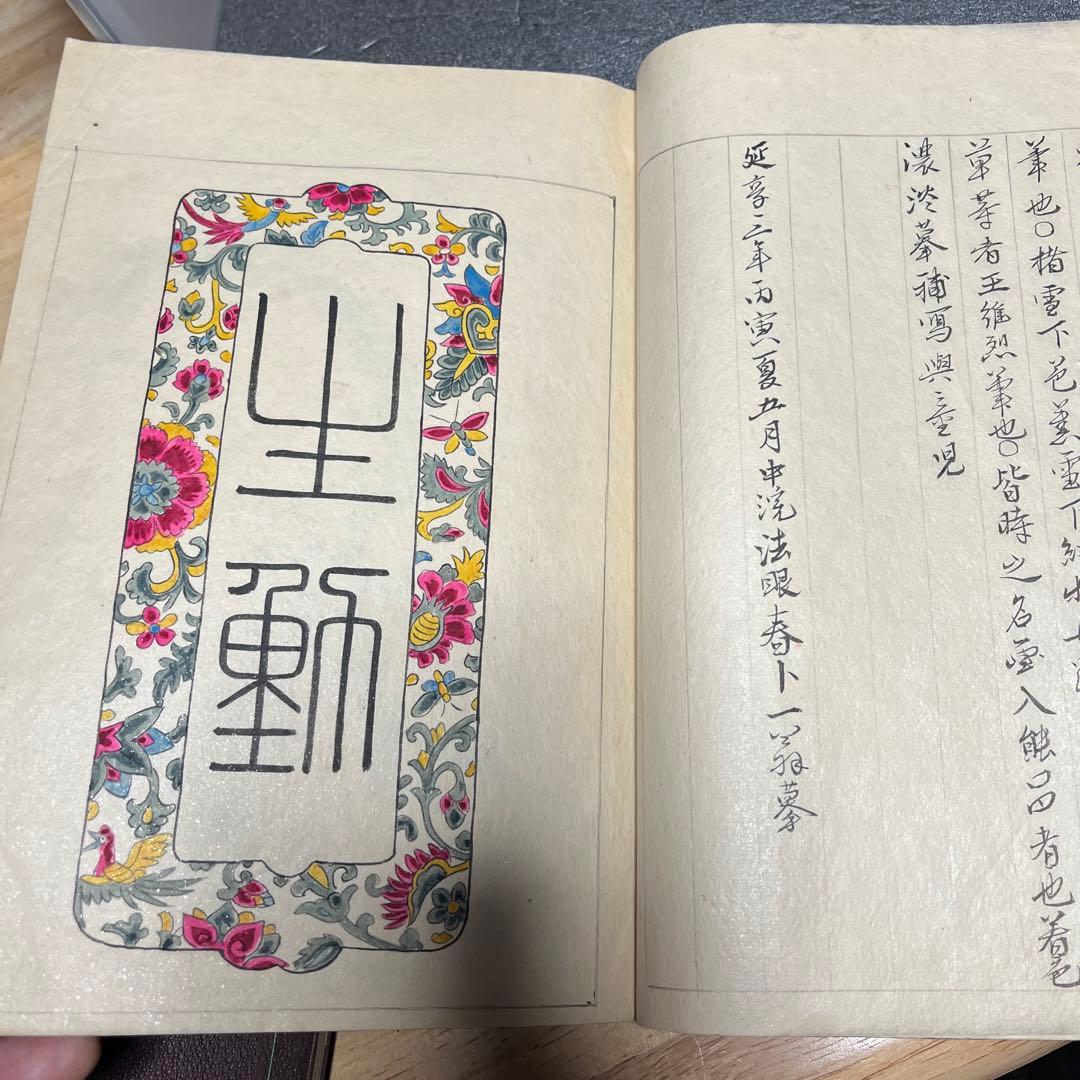 筆也○楷雪下芭蕉雪下紅
草芽者王維烈筆也○皆時之名画入能品者也着色
濃淡摹補寫與三童児
延享三年丙寅夏五月中浣法眼春卜一翁摹
生動